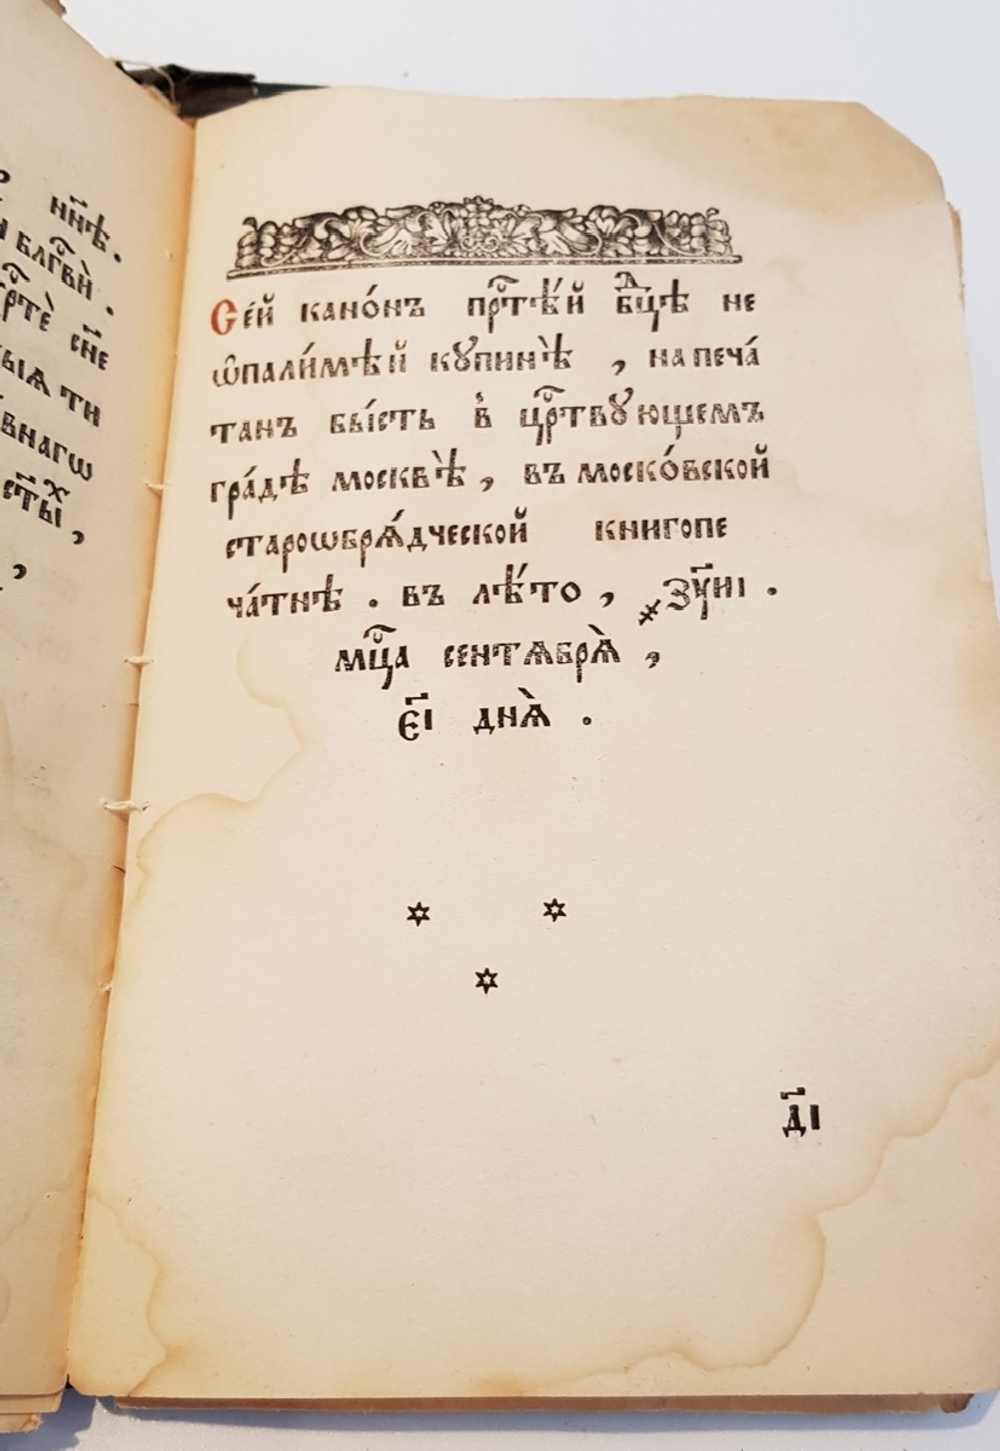 нн҃ѣ .
блг҃вѝ .
сн҃е
ти
Се́й кано́нъ прⷭ҇тѣ́й бцⷣѣ не
ѡпали́мѣй кꙋпинѣ̀ , напеча́
танъ бы́сть в̾ црⷭ҇твꙋющемъ
гра́дѣ москвѣ̀ , въ моско́вской
староѡбрѧ́дческой книгопе
ча́тнѣ . въ лѣ́то , ҂зу҃иі .
мцⷭ҇а сентѧбрѧ̀ ,
є҃і днѧ̀ .
д҃і